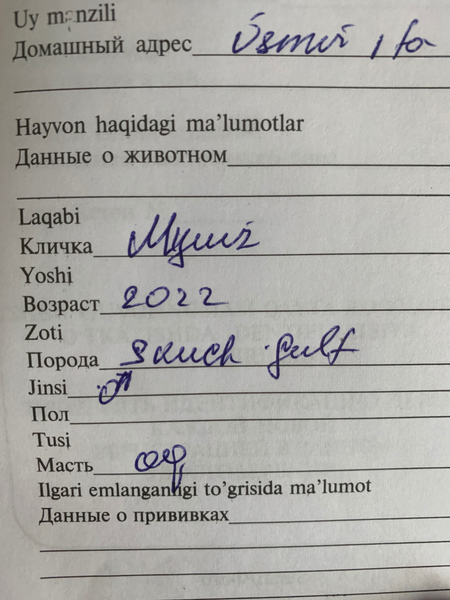 Uy manzili
Домашный адрес
Hayvon haqidagi ma’lumotlar
Данные о животном
Laqabi
Кличка
Yoshi
Возраст 2022
Zoti
Порода
Jinsi ♂
Пол
Tusi
Масть oq
Ilgari emlanganligi to’grisida ma’lumot
Данные о прививках